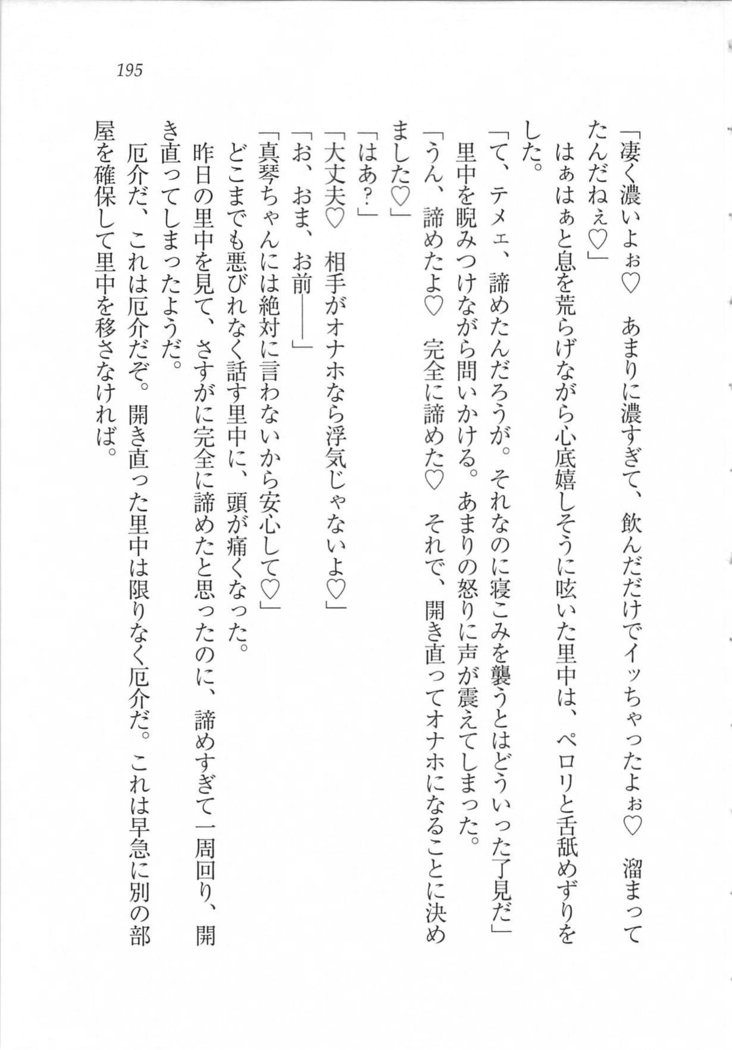 195
「凄く濃いよぉ♡　あまりに濃すぎて、飲んだだけでイッちゃったよぉ♡　溜まって
たんだねぇ♡」
　はぁはぁと息を荒らげながら心底嬉しそうに呟いた里中は、ペロリと舌舐めずりを
した。
「て、テメェ、諦めたんだろうが。それなのに寝こみを襲うとはどういった了見だ」
　里中を睨みつけながら問いかける。あまりの怒りに声が震えてしまった。
「うん、諦めたよ♡　完全に諦めた♡　それで、開き直ってオナホになることに決め
ました♡」
「はあ？」
「大丈夫♡　相手がオナホなら浮気じゃないよ♡」
「お、おま、お前――」
「真琴ちゃんには絶対に言わないから安心して♡」
　どこまでも悪びれなく話す里中に、頭が痛くなった。
　昨日の里中を見て、さすがに完全に諦めたと思ったのに、諦めすぎて一周回り、開
き直ってしまったようだ。
　厄介だ、これは厄介だぞ。開き直った里中は限りなく厄介だ。これは早急に別の部
屋を確保して里中を移さなければ。